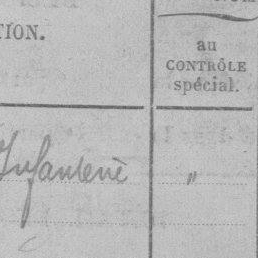 TION.
au
CONTRÔLE
spécial.
Infanterie "